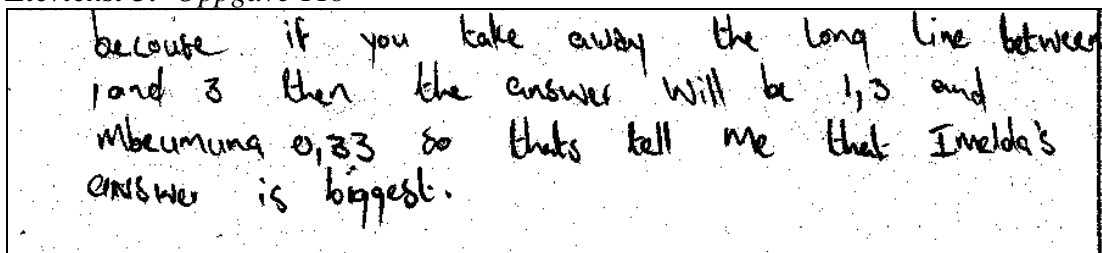 becouse if you take away the long line between
1and 3 then the answer will be 1,3 and
Mbeumuna 0,33 so thats tell me that Imelda's
answer is biggest.